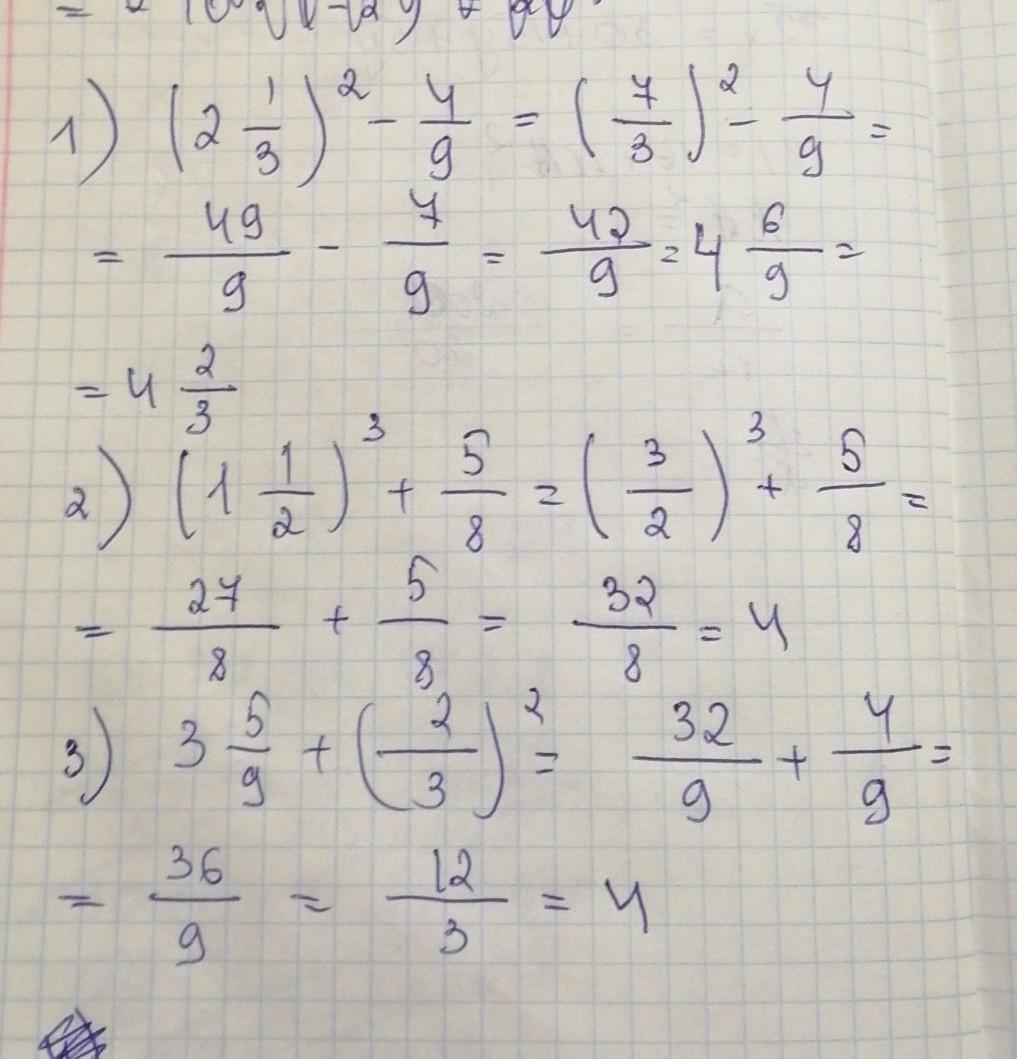 1) (2 1/3)² - 4/9 = (7/3)² - 4/9 =
= 49/9 - 7/9 = 42/9 = 4 6/9 =
= 4 2/3
2) (1 1/2)³ + 5/8 = (3/2)³ + 5/8 =
= 27/8 + 5/8 = 32/8 = 4
3) 3 5/9 + (2/3)² = 32/9 + 4/9 =
= 36/9 = 12/3 = 4